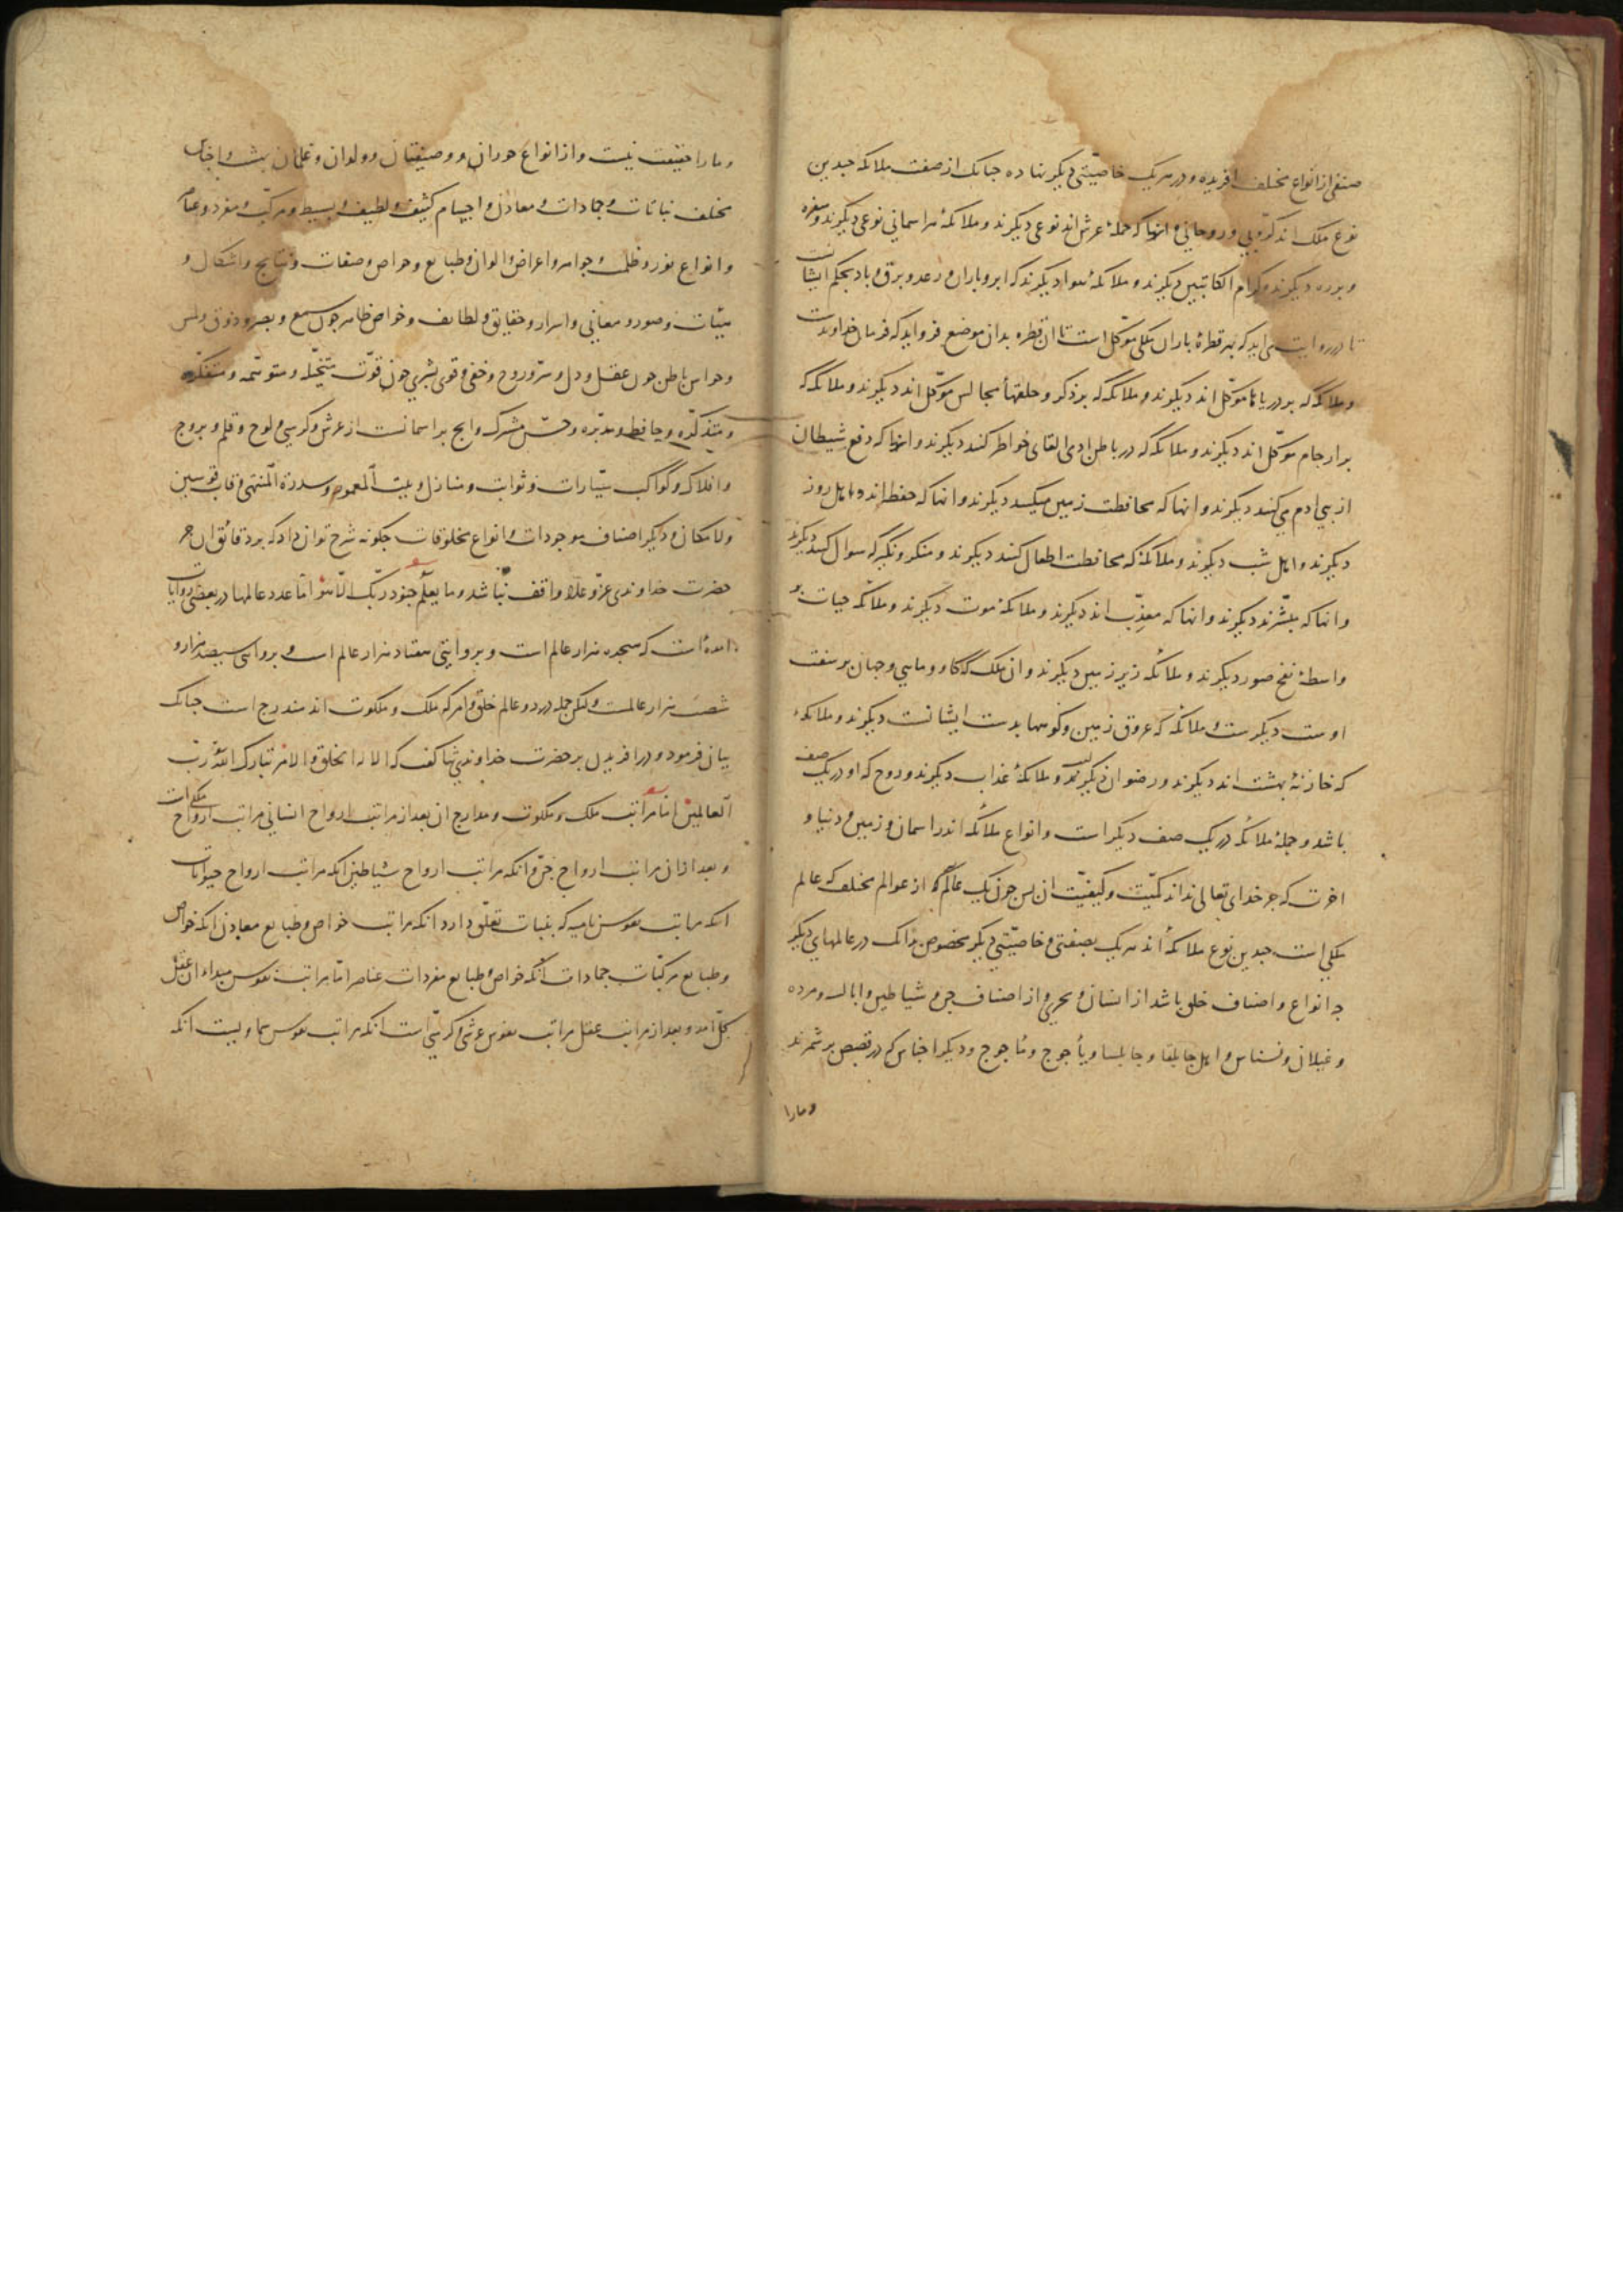 صنفی از انواع مختلف افریده و در هریک خاصیّتی دیکر نهاده جنانک از صفت ملائکه جندین
نوع ملک اند کرّوبی و روحانی و انها که حملهٔ عرش اند نوعی دیکرند و ملائکهٔ هر اسمانی نوعی دیکرند و سفره
و برره دیکرند و کرام الکاتبین دیکرند و ملائکهٔ هوا دیکرند که ابر و باران و رعد و برق و باد بحکم ایشانست
تا در روایت می اید که بهر قطرهٔ باران ملکی موکّل است تا ان قطره بدان موضع فرو اید که فرمان خداوندست
و ملائکه که بر دریاها موکّل اند دیکرند و ملائکه که بر ذکر و حلقهاء مجالس موکّل اند دیکرند و ملائکه که
بر ارحام موکّل اند دیکرند و ملائکه که در باطن ادمی القای خواطر کنند دیکرند و انها که دفع شیطان
از بنی ادم می کنند دیکرند و انها که محافظت زمین میکنند دیکرند و انها که حفظه اند و اهل روز
دیکرند و اهل شب دیکرند و ملائکه که محافظت اطفال کنند دیکرند و منکر و نکیر که سوال کنند دیکرند
و انها که مبشّرند دیکرند و انها که معذّب اند دیکرند و ملائکهٔ موت دیکرند و ملائکه حیات بو
واسطهٔ نفخ صور دیکرند و ملائکه زیر زمین دیکرند و ان ملک که کاو و ماهی و جهان بر سفت
اوست دیکرست و ملائکه که عروق زمین و کوهها بدست ایشانست دیکرند و ملائکهٔ
که خازنهٔ بهشت اند دیکرند و رضوان دیکرند و ملائکهٔ عذاب دیکرند و روح که او در یک صف
باشد و جملهٔ ملائکه در یک صف دیکر است و انواع ملائکه اند در اسمان و زمین و دنیا و
اخرت که جز خدای تعالی نداند کمیّت و کیفیّت ان بس جون یک عالم که از عوالم مختلف که عالم
ملکی است جندین نوع ملائکه اند هر یک بصفتی و خاصیّتی دیکر مخصوص بدانک در عالمهای دیکر
جه انواع و اصناف خلق باشد از انسان و بحری و از اصناف جن و شیاطین و ابالسه و مرده
و غیلان و نسناس و اهل جابلقا و جابلسا و یأجوج و مأجوج و دیکر اجناس که در قصص بر شمرند
و مارا
و مارا حقیقت نیست و از انواع حوران و وصیفتان و ولدان و غلمان بهشت و اجناس
مختلف نباتات و جمادات و معادن و اجسام کثیف و لطیف و بسیط و مرکّب و مفرد و عناصر
و انواع نور و ظلمت و جواهر و اعراض و الوان و طبایع و خواص و صفات و نتایج و اشکال و
هیئات و صور و معانی و اسرار و حقایق و لطایف و حواس ظاهر جون سمع و بصر و ذوق و لمس
و حواس باطن جون عقل و دل و سرّ و روح و خفی و قوی بشری جون قوّت متخیّله و متوهّمه و متفکّره
و متذکّره و حافظه و مدبّره و حسّ مشترک و انج بر اسمانست از عرش و کرسی و لوح و قلم و بروج
و افلاک و کواکب سیّارات و ثوابت و منازل و بیت المعمور و سدرة المنتهی و قاب قوسین
و لامکان و دیکر اصناف موجودات و انواع مخلوقات جکونه شرح توان داد که بر دقائق ان جز
حضرت خداوندی عزّ و علا واقف نباشد و ما یعلم جنود ربّک الّا هو امّا عدد عالمها در بعضی روایات
امده است که هجده هزار عالم است و بروایتی هفتاد هزار عالم است و بروایتی سیصد هزار و
شصت هزار عالمست ولیکن جمله در دو عالم خلق و امر که ملک و ملکوت اند مندرج است جنانک
بیان فرمود و در افریدن بر حضرت خداوندی ثنا کفت که الا له الخلق و الامر تبارک الله ربّ
العالمین امّا مراتب ملک و ملکوت و مدارج ان بعد از مراتب ارواح انسانی مراتب ارواح ملکی است
و بعد از ان مراتب ارواح جنّ و انکه مراتب ارواح شیاطین انکه مراتب ارواح حیوانات
انکه مراتب نفوس نامیه که بنبات تعلّق دارد انکه مراتب خواص و طبایع معادن انکه خواص
و طبایع مرکّبات جمادات انکه خواص و طبایع مفردات عناصر امّا مراتب نفوس مبداء ان عقل
کلّ امد و بعد از مراتب عقل مراتب نفوس عرشی و کرسی است انکه مراتب نفوس سماویست انکه